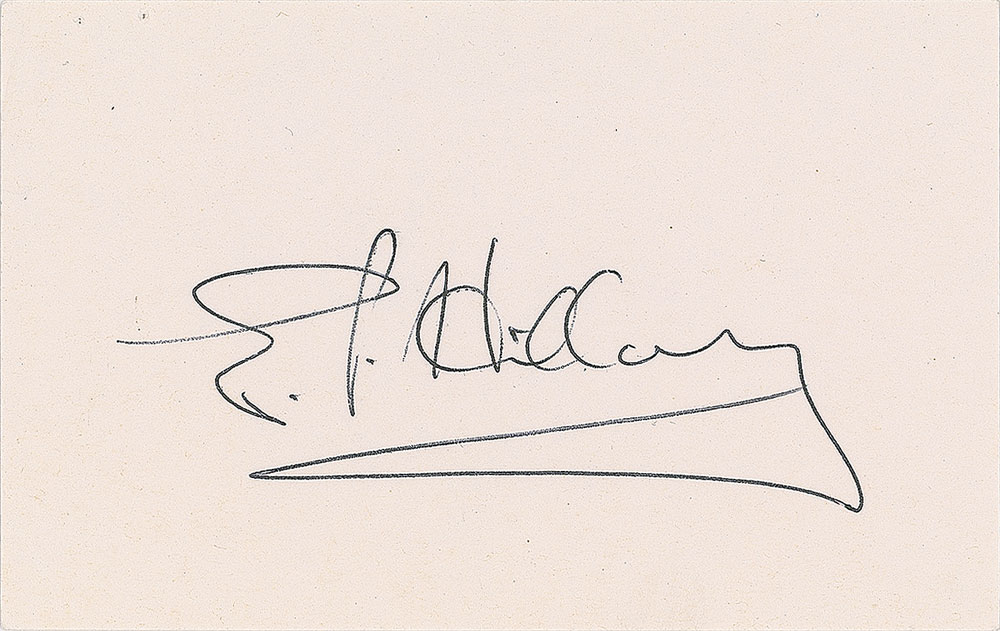 E. P. Hillary